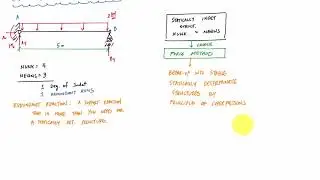 A
B
5 m
NUNK = 4
NEQNS = 3
1 Deg. of Indet
1 REDUNDANT RXNS
REDUNDANT REACTION: A SUPPORT REACTION
THAT IS MORE THAN YOU NEED FOR
A STATICALLY DET. STRUCTURE.
STATICALLY INDET
STRUCT.
NUNK > NEQNS
FORCE METHOD
BREAK-UP INTO STABLE
STATICALLY DETERMINATE
STRUCTURES BY
PRINCIPLE OF SUPERPOSITION